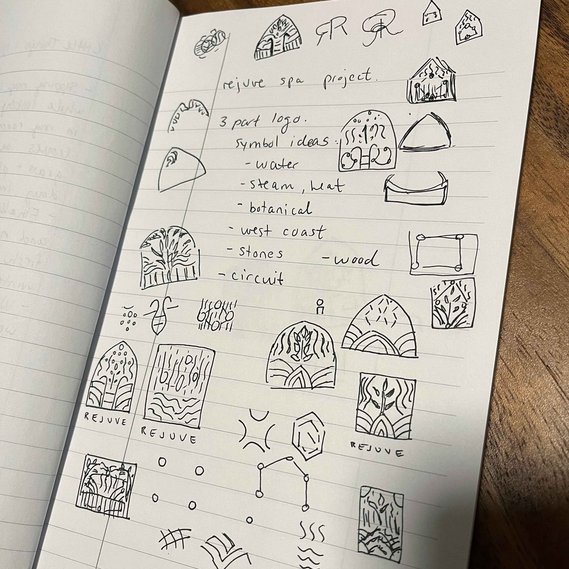 R R
rejuve spa project.
3 part logo.
symbol ideas:
- water
- steam, heat
- botanical
- west coast
- stones - wood
- circuit
REJUVE
REJUVE
REJUVE